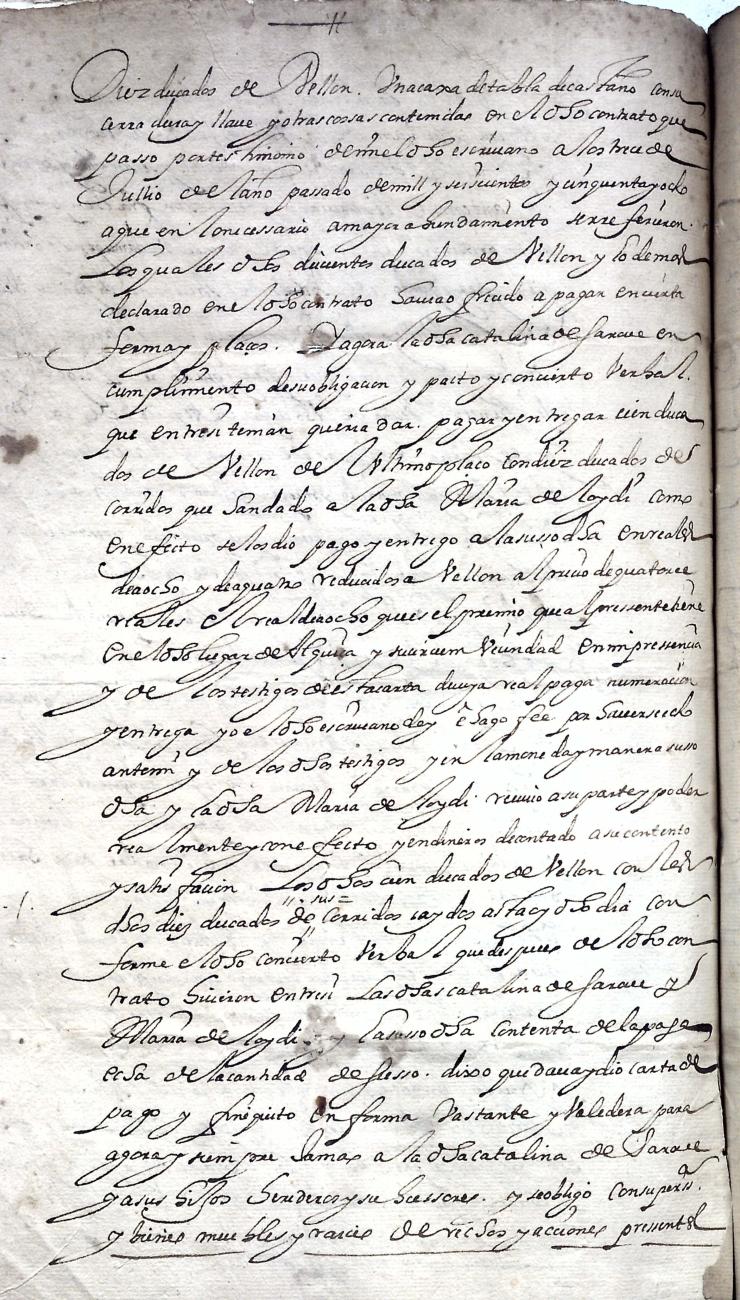 Diez ducados de Vellon. Una caxa de tabla de castaño con su
cerradura y llave y otras cossas contenidas en el dho contrato que
passo por testimonio de mi el dho escriuano a los trece de
Jullio del año passado de mill y seiscientos y cinquenta y ocho
a que en lo necessario a mayor abundamento se rrefirieron.
Los quales dhos ducientos ducados de Vellon y lo demas
declarado en el dho contrato hauia ofrecido a pagar en cierta
forma y plaços. Y agora la dha catalina de Sarove en
cumplimento de su obligacion y pacto y concierto Verbal
que entre si tenian queria dar. pagar y entregar cien duca
dos de Vellon del Ultimo plaço con diez ducados de
corridos que han dado a la dha Maria de loydi como
en efecto se los dio pago y entrego a la susso dha en reales
de a ocho y de a quatro reducidos a Vellon al precio de quatorce
reales el real de a ocho que es el premio que al pressente tiene
en el dho lugar de Alquiça y su circum Vecindad en mi pressencia
y de los testigos de esta carta de cuya real paga numeracion
y entrega yo el dho escriuano doy e hago fee por hauerse echo
ante mi y de los dhos testigos y en la moneda y manera susso
dha y la dha Maria de loydi reciuio a su parte y poder
realmente y con efecto y en dineros de contado a su contento
y satisfacion Los dhos cien ducados de Vellon con los
dhos diez ducados de sus corridos caydos asta oy dho dia con
forme el dho concierto Verbal que despues del dho con
trato hicieron entre si Las dhas catalina de Sarove y
Maria de loydi y la susso dha contenta de la paga
echa de la cantidad de suso. dixo que daua y dio carta de
pago y finiquito en forma Vastante y Valedera para
agora y siempre Jamas a la dha catalina de Sarove
y a sus hijos herederos y subcessores. y se obligo con su perss.ª
y bienes muebles y raices derechos y acciones pressentes